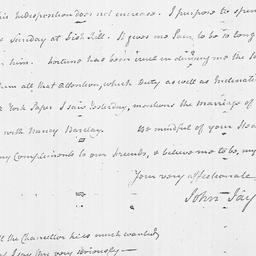 his Indisposition does not increase. I purpose to spen
Sunday at Fish Kill. It gives me Pain to be so long
him. Fortune has been cruel in denying me the
him all that Attention, which Duty as well as Inclinatio
York Paper I saw Yesterday, mentions the marriage of
with Nancy Barclay. Be mindful of your Hea
my Compliments to our friends, & believe me to be, my
Your very affectionate
John Jay
the Chancellor he is much wanted